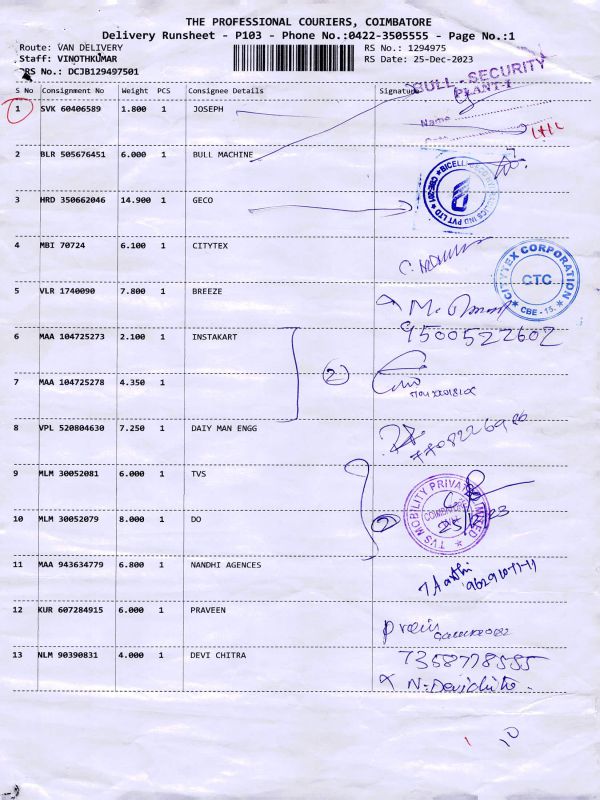 THE PROFESSIONAL COURIERS, COIMBATORE
Delivery Runsheet - P103 - Phone No.:0422-3505555 - Page No.:1
Route: VAN DELIVERY RS No.: 1294975
Staff: VINOTHKUMAR RS Date: 25-Dec-2023
DRS No.: DCJB129497501
BULL - SECURITY
PLANT-I
S No Consignment No Weight PCS Consignee Details Signature
Name
1 SVK 60406589 1.800 1 JOSEPH
2 BLR 505676451 6.000 1 BULL MACHINE
3 HRD 350662046 14.900 1 GECO
4 MBI 70724 6.100 1 CITYTEX
CITYTEX CORPORATION
CTC
CBE - 15.
5 VLR 1740090 7.800 1 BREEZE
9500522602
6 MAA 104725273 2.100 1 INSTAKART
2
7 MAA 104725278 4.350 1
8 VPL 520804630 7.250 1 DAIY MAN ENGG
9 MLM 30052081 6.000 1 TVS
TVS MOBILITY PRIVATE LIMITED
10 MLM 30052079 8.000 1 DO
2
11 MAA 943634779 6.800 1 NANDHI AGENCES
12 KUR 607284915 6.000 1 PRAVEEN
13 NLM 90390831 4.000 1 DEVI CHITRA
7368778585
N. Devichitra
10